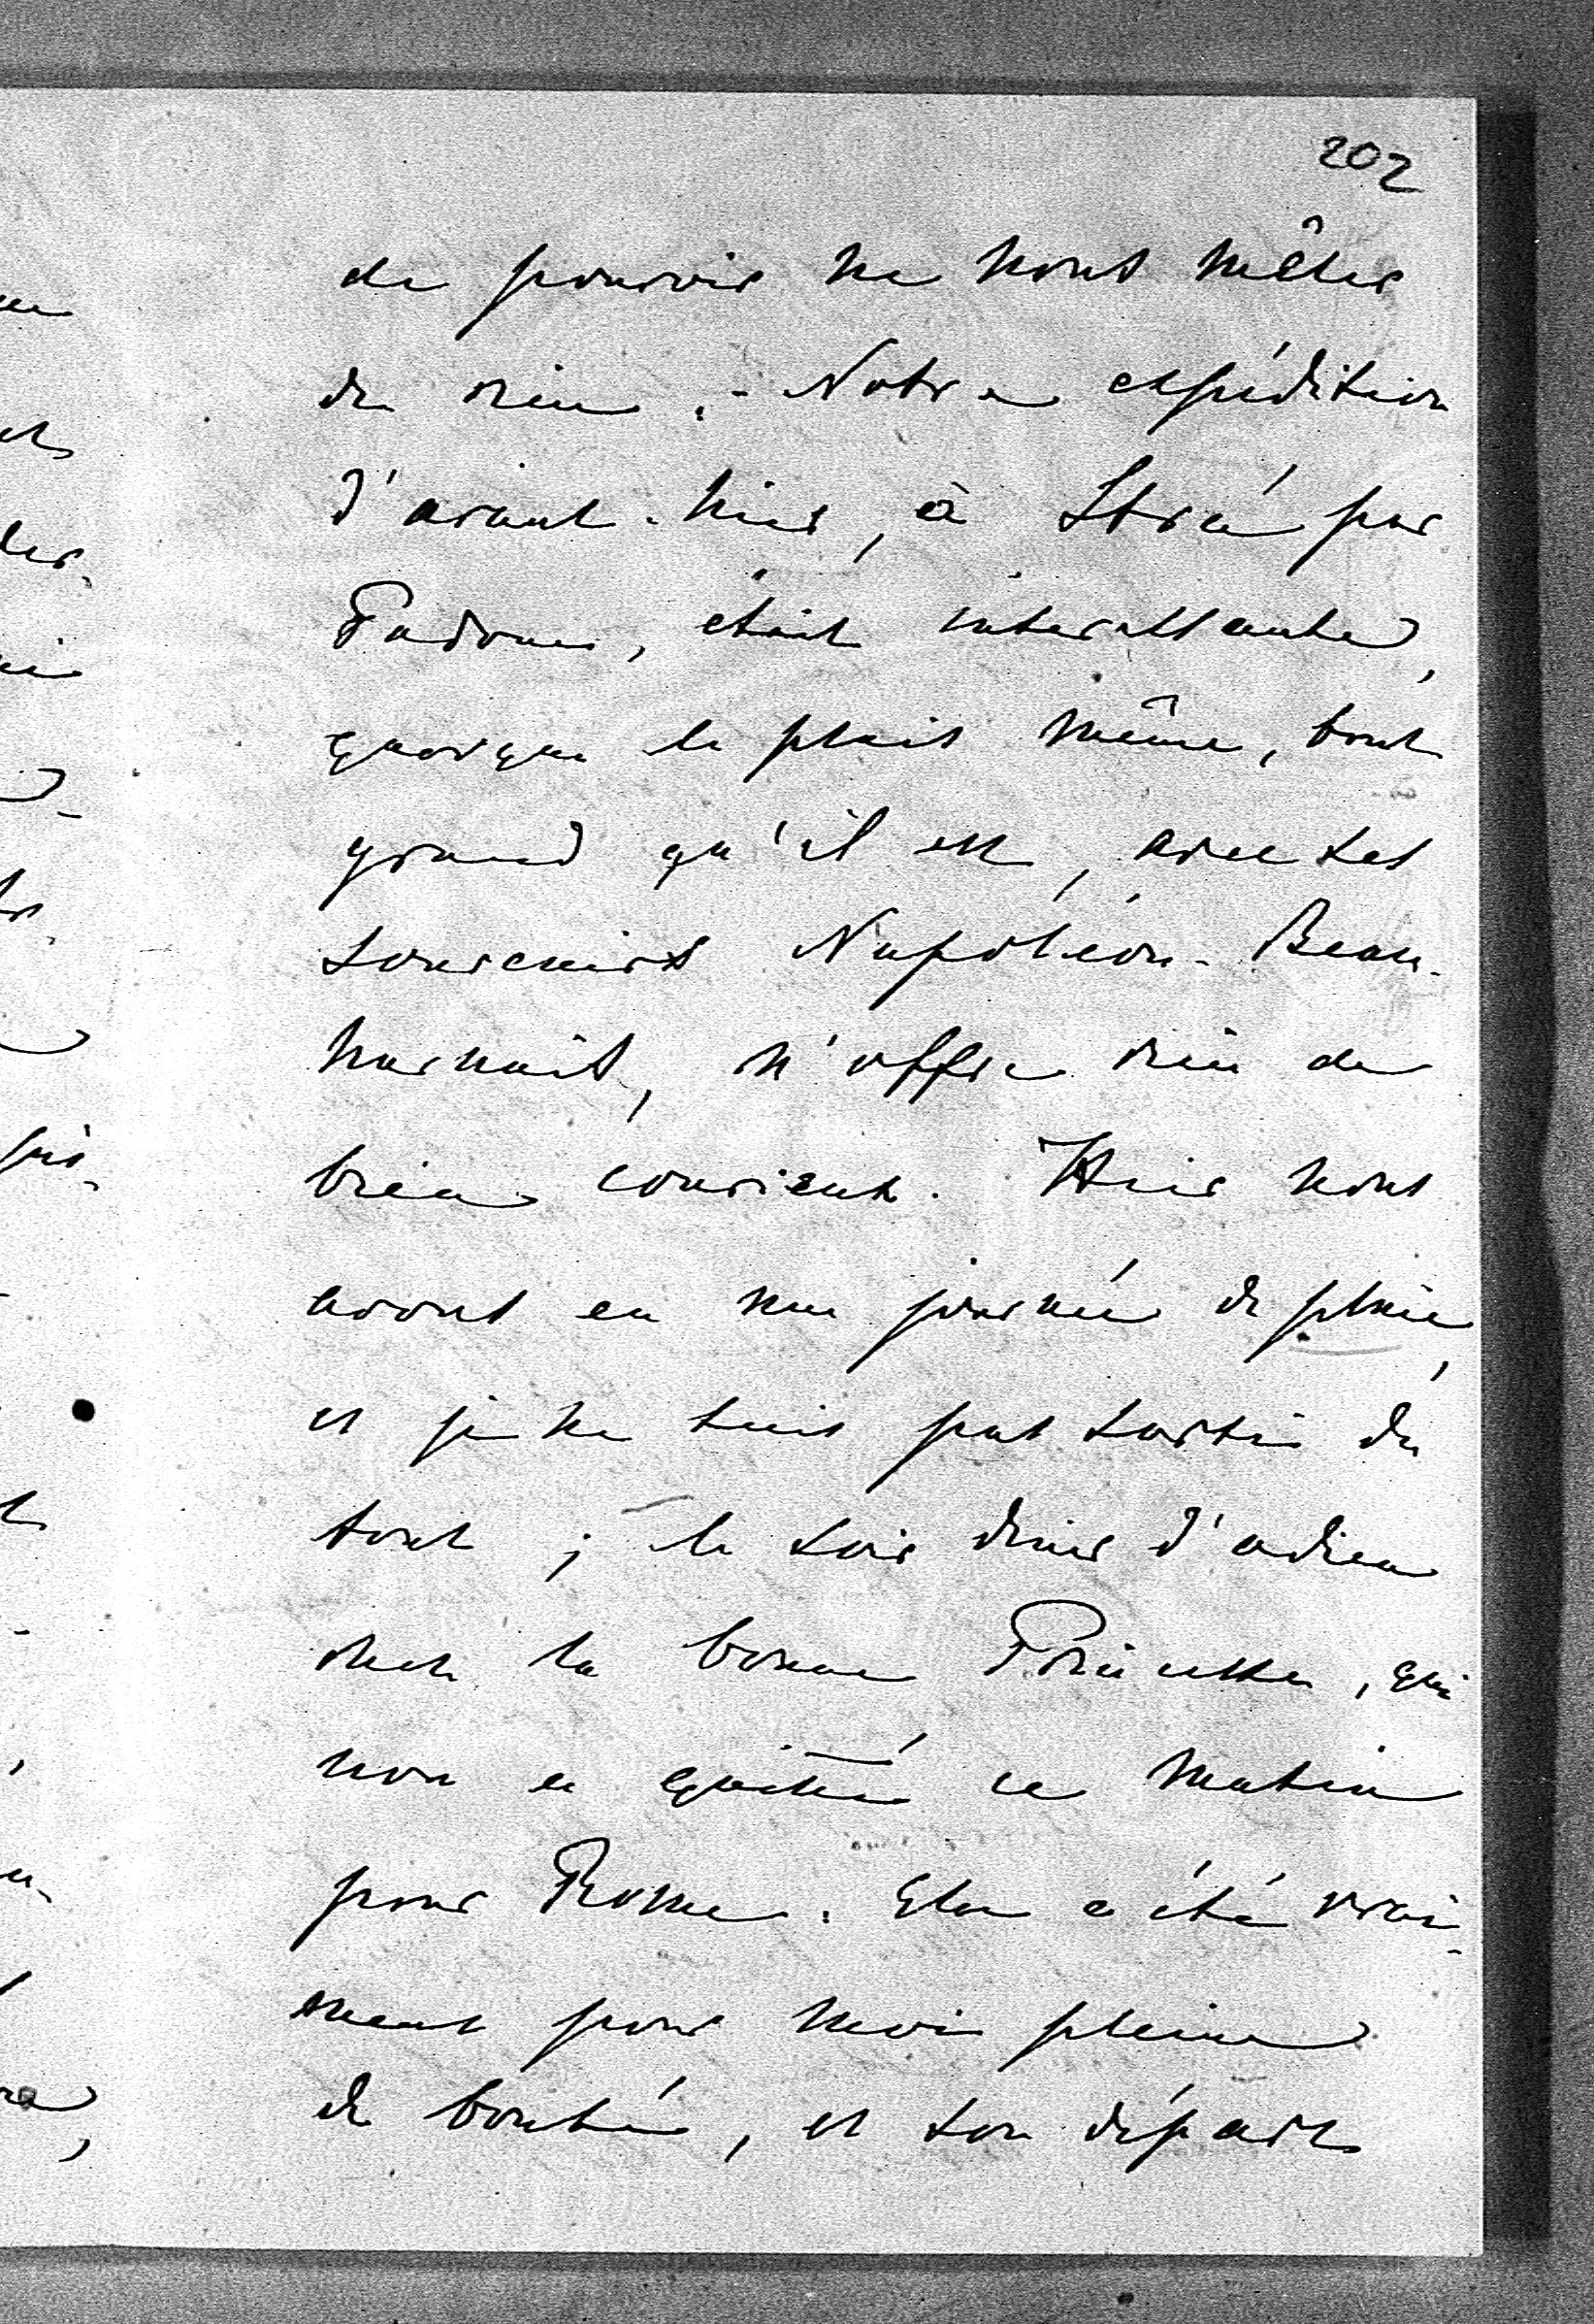 202
de pouvoir ne nous mêler
de rien. - Notre expédition
d'avant-hier, à Strà par
Padoue, était interessante,
quoique le palais même, tout
grand qu'il est, avec ses
souvenirs Napoléon-Beau-
harnais, n'offre rien de
bien curieux. Hier nous
avons eu une journée de pluie,
et je ne suis pas sorti du
tout ; le soir diner d'adieu
chez la bonne Princesse, qui
nous a quitté ce matin
pour Rome. Elle a été vrai-
ment pour moi pleine
de bonté, et son départ